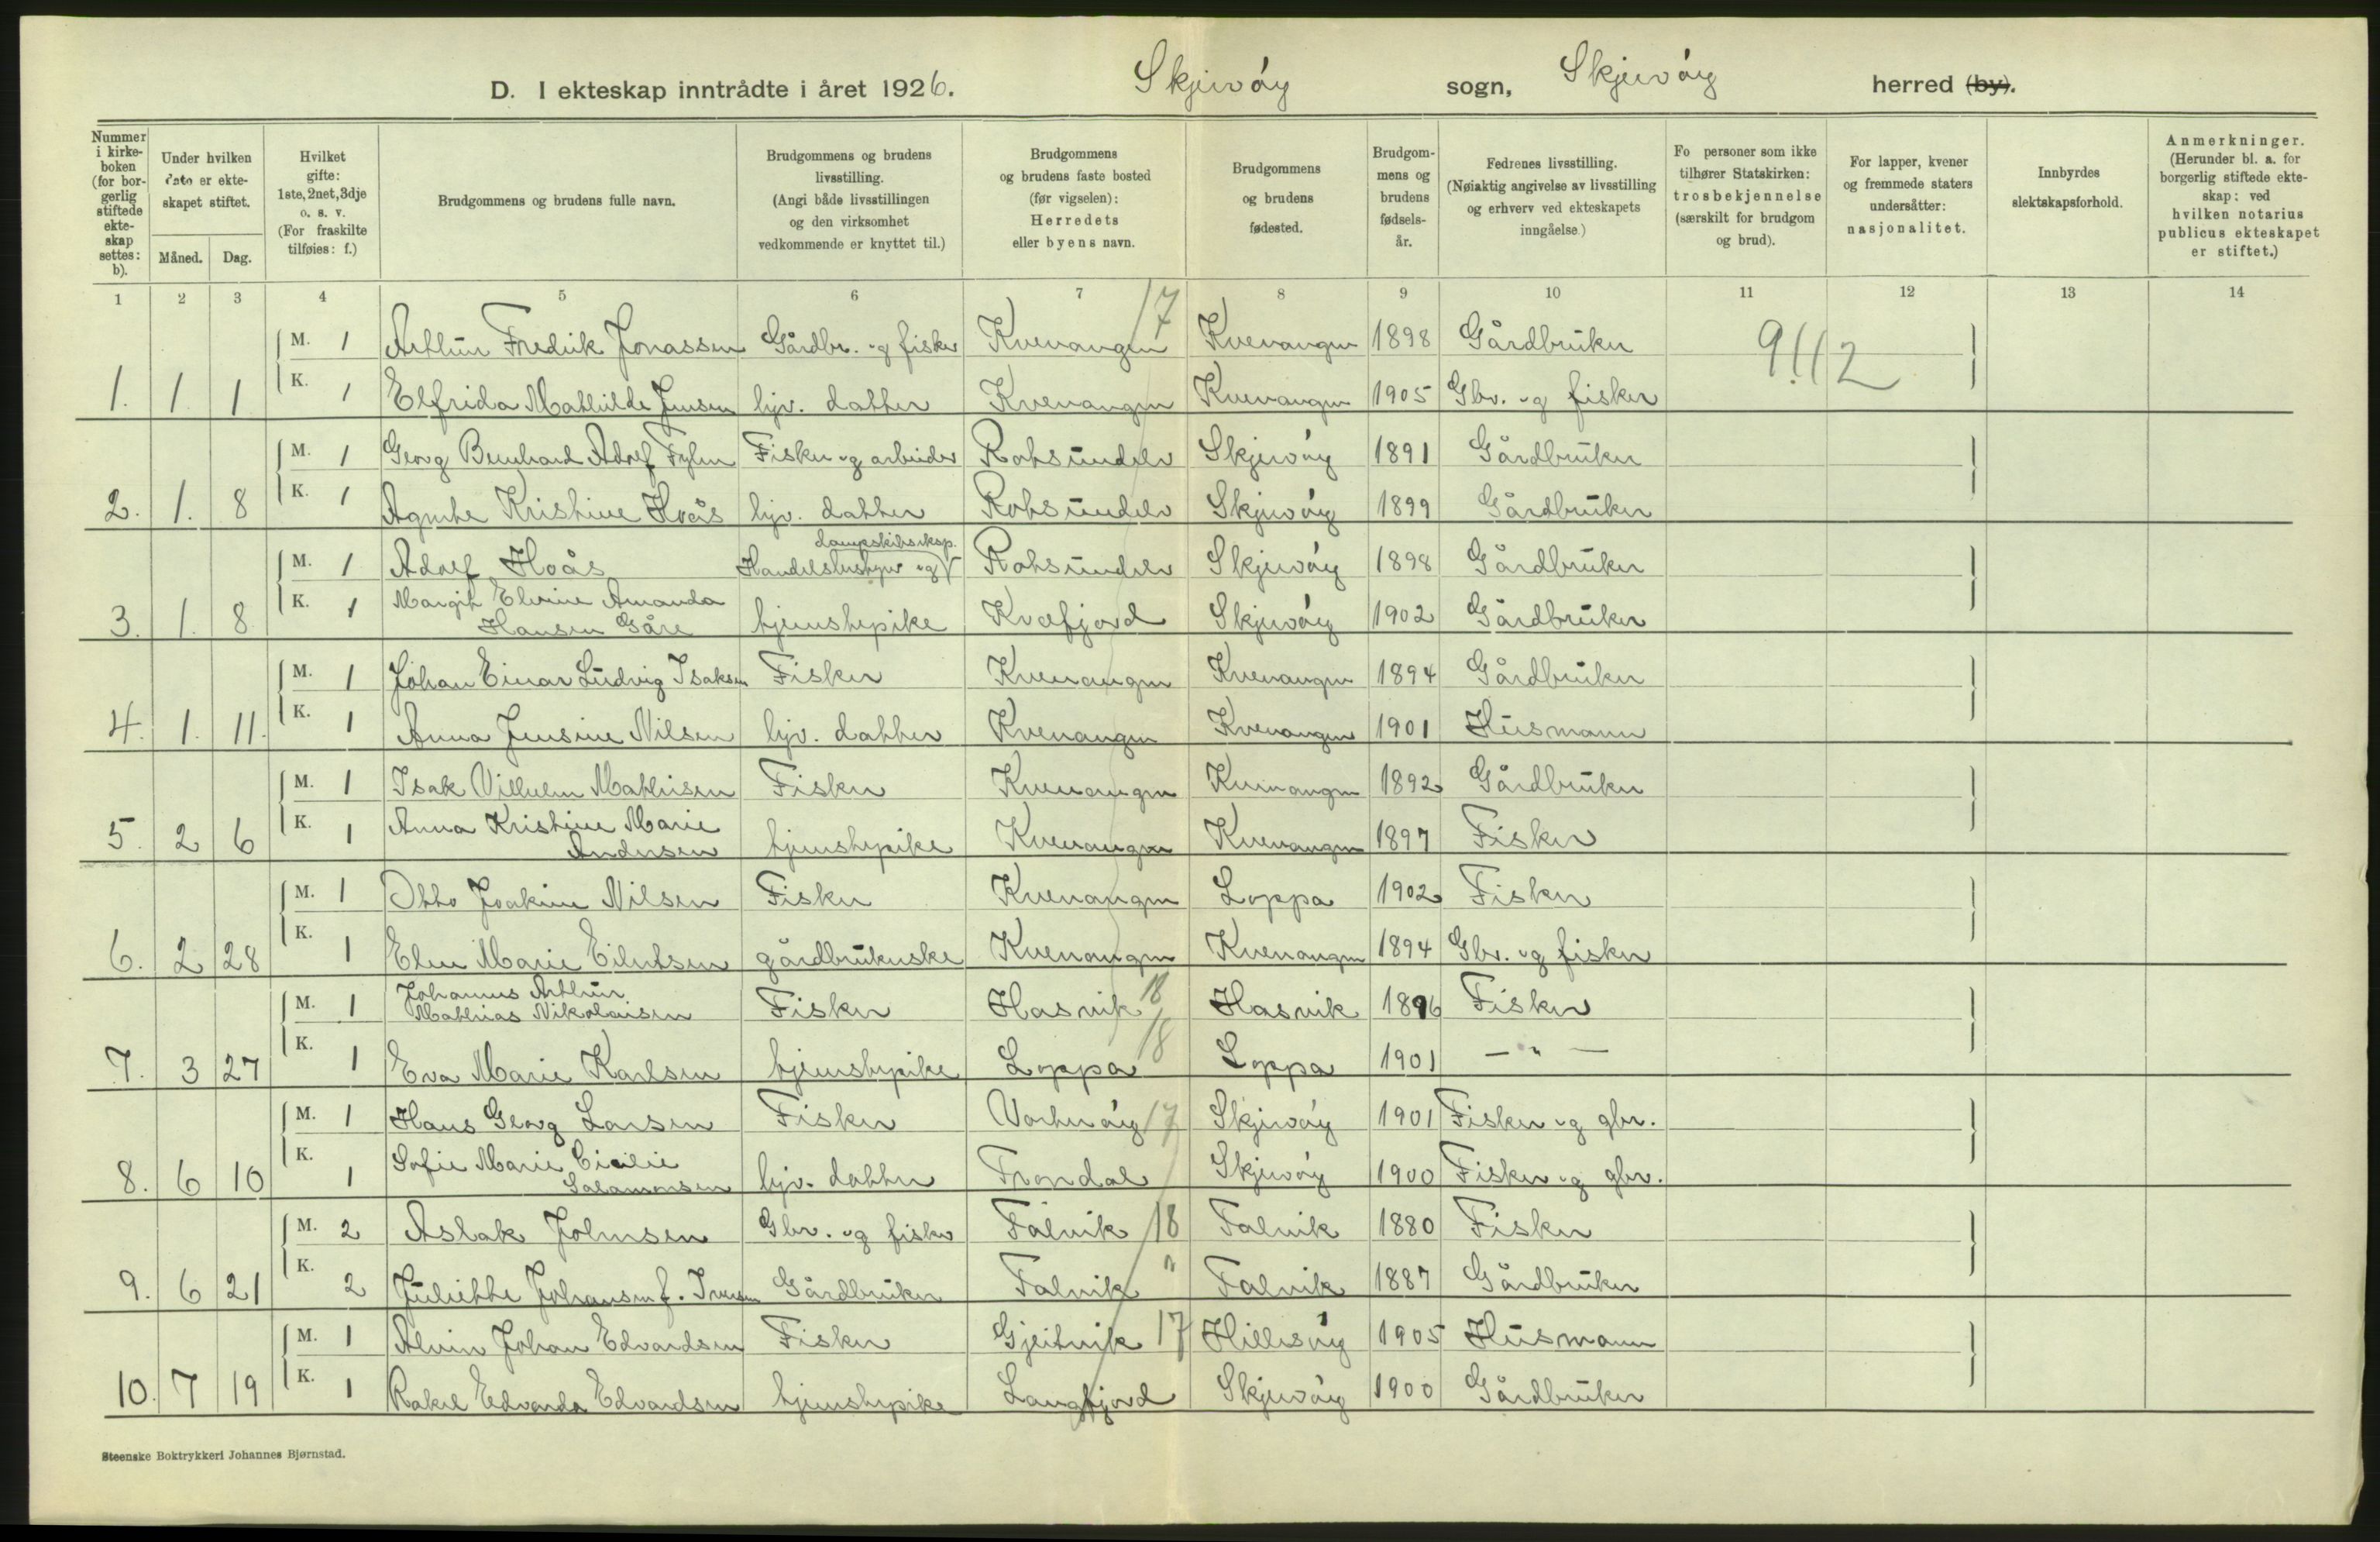 D. I ekteskap inntrådte i året 1926. Skjervøy sogn, Skjervøy herred (by).
Nummer i kirkeboken (for borgerlig stiftede ekteskap settes: b).
Under hvilken dato er ekteskapet stiftet.
Måned. Dag.
Hvilket gifte: 1ste, 2net, 3dje o. s. v. (For fraskilte tilføies: f.)
Brudgommens og brudens fulle navn.
Brudgommens og brudens livsstilling. (Angi både livsstillingen og den virksomhet vedkommende er knyttet til.)
Brudgommens og brudens faste bosted (før vigselen): Herredets eller byens navn.
Brudgommens og brudens fødested.
Brudgommens og brudens fødselsår.
Fedrenes livsstilling. (Nøiaktig angivelse av livsstilling og erhverv ved ekteskapets inngåelse.)
Fo personer som ikke tilhører Statskirken: trosbekjennelse (særskilt for brudgom og brud).
For lapper, kvener og fremmede staters undersåtter: nasjonalitet.
Innbyrdes slektskapsforhold.
Anmerkninger. (Herunder bl. a. for borgerlig stiftede ekteskap: ved hvilken notarius publicus ekteskapet er stiftet.)
1 2 3 4 5 6 7 8 9 10 11 12 13 14
17
M. 1 Arthur Fredrik Jonassen Gårdbr. og fisker Kvenangen Kvenangen 1898 Gårdbruker
1. 1. 1 K. 1 Elfrida Mathilde Jensen hjv. datter Kvenangen Kvenangen 1905 Gbr. og fisker
M. 1 Georg Bernhard Adolf Fisker og arbeider Rotsundelv Skjervøy 1891 Gårdbruker
2. 1. 8 K. 1 Agnete Kristine Hoås hjv. datter Rotsundelv Skjervøy 1899 Gårdbruker
dampskibseksp.
M. 1 Adolf Hoås Handelsbestyrer og Rotsundelv Skjervøy 1898 Gårdbruker
K. 1 Margit Elvine Amanda
3. 1. 8 Hansen Gåre tjenestepike Kvæfjord Skjervøy 1902 Gårdbruker
M. 1 Johan Einar Ludvig Isaksen Fisker Kvenangen Kvenangen 1894 Gårdbruker
4. 1. 11. K. 1 Anna Jensine Nilsen hjv. datter Kvenangen Kvenangen 1901 Husmann
M. 1 Isak Vilhelm Mathisen Fisker Kvenangen Kvenangen 1892 Gårdbruker
K. 1 Anna Kristine Marie
5. 2 6 Andersen tjenestepike Kvenangen Kvenangen 1897 Fisker
M. 1 Otto Joakim Nilsen Fisker Kvenangen Loppa 1902 Fisker
6. 2 28 K. 1 Elen Marie Eilertsen gårdbrukerske Kvenangen Kvenangen 1894 Gbr. og fisker
Johannes Arthur
M. 1 Mathias Nikolaisen Fisker Hasvik 18 Hasvik 1896 Fisker
7. 3 27 K. 1 Eva Marie Karlsen tjenestepike Loppa 18 Loppa 1901 — " —
M. 1 Hans Georg Larsen Fisker Vorterøy 17 Skjervøy 1901 Fisker og gbr.
K. 1 Sofie Marie Cicilie
8. 6 10 Salamonsen hjv. datter Trondal Skjervøy 1900 Fisker og gbr.
M. 2 Aslak Johnsen Gbr. og fisker Talvik 18 Talvik 1880 Fisker
9. 6 21 K. 2 Juliette Johansen f. Iversen Gårdbruker Talvik " Talvik 1887 Gårdbruker
M. 1 Alvin Johan Edvardsen Fisker Gjeitvik 17 Hillesøy 1905 Husmann
10. 7 19 K. 1 Rakel Edvarda Edvardsen tjenestepike Langfjord Skjervøy 1900 Gårdbruker
Steenske Boktrykkeri Johannes Bjørnstad.